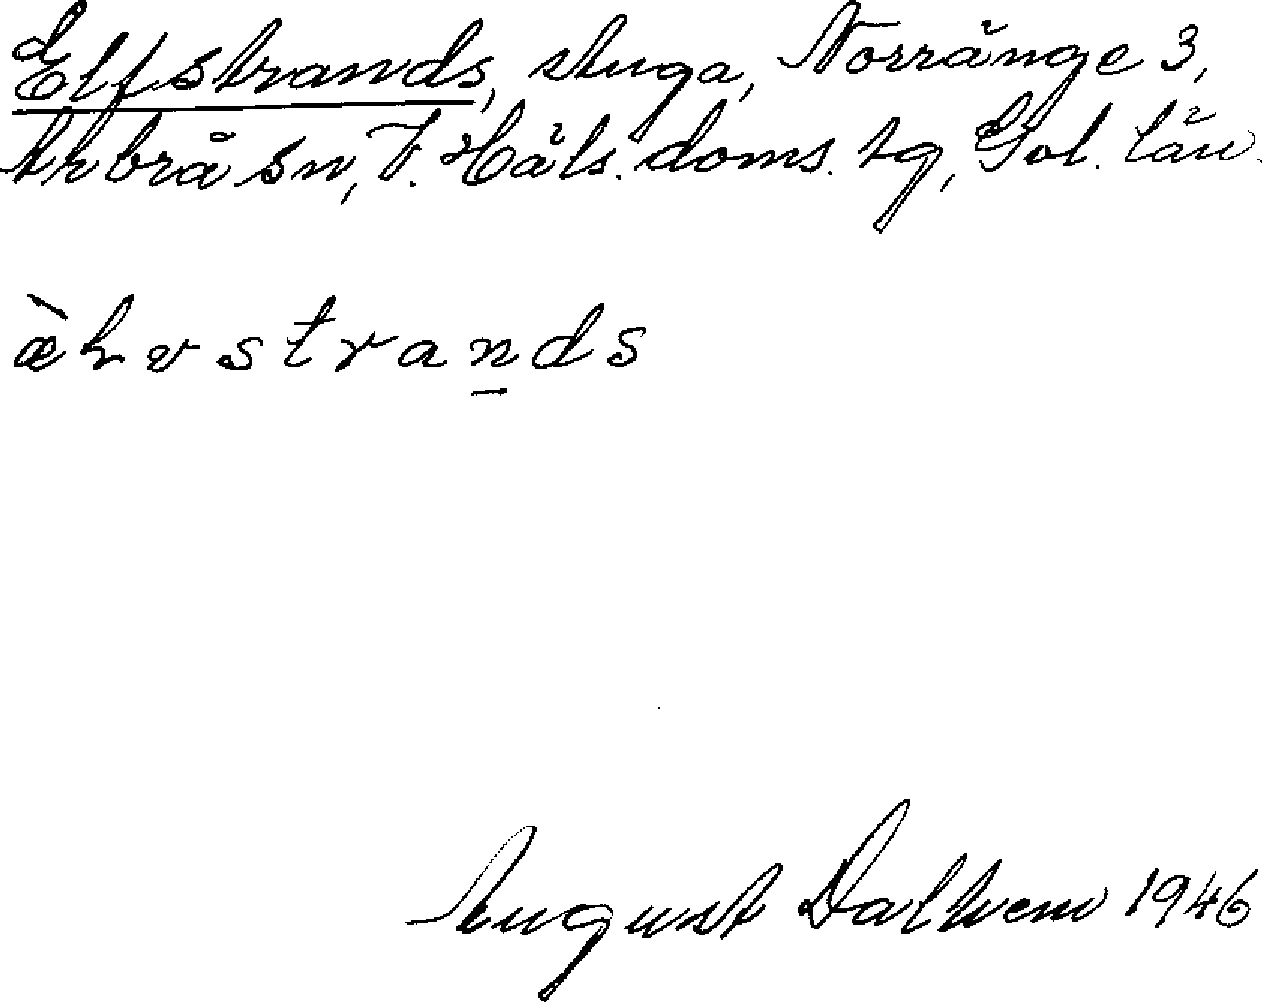 Elfstrands, stuga, Norränge 3,
Arbrå sn, V. Häls. doms. tg, Gvl. län.
æ̀lvstran̲ds
August Dalhem 1946